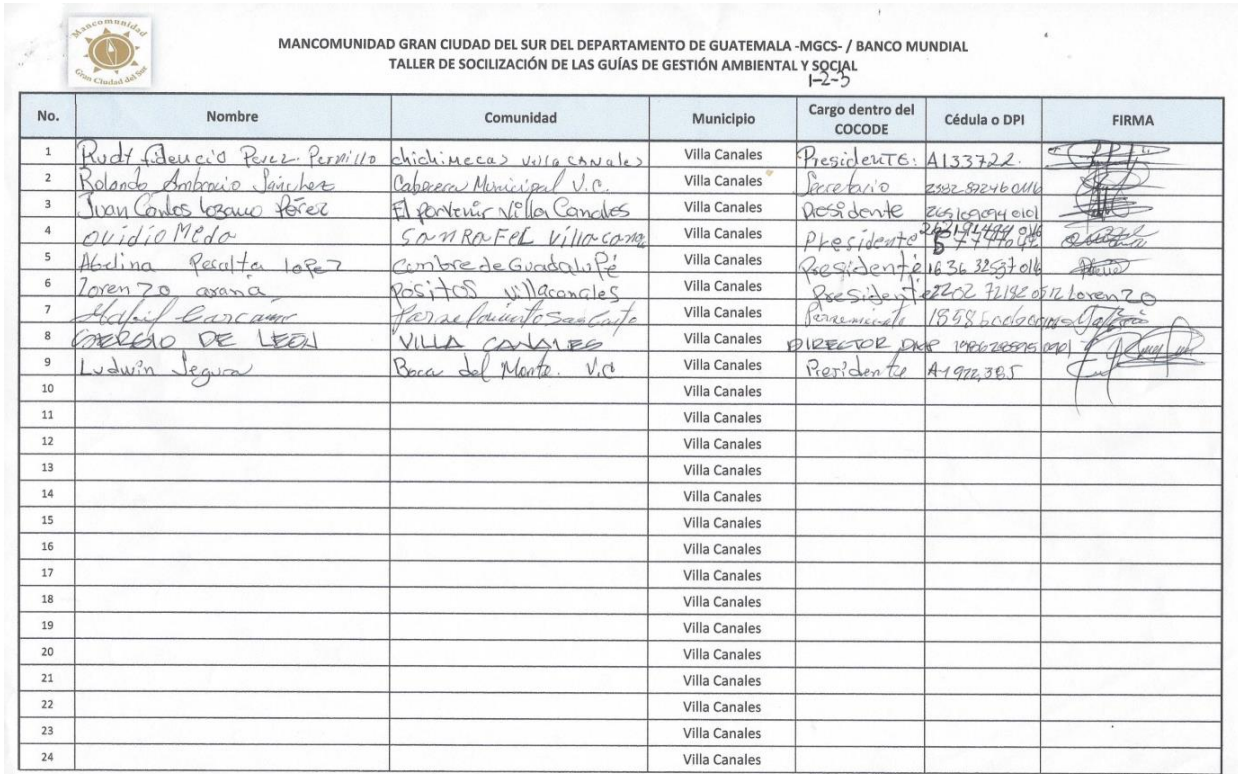 Mancomunidad
Gran Ciudad del Sur
MANCOMUNIDAD GRAN CIUDAD DEL SUR DEL DEPARTAMENTO DE GUATEMALA -MGCS- / BANCO MUNDIAL
TALLER DE SOCILIZACIÓN DE LAS GUÍAS DE GESTIÓN AMBIENTAL Y SOCIAL
1-2-3
No. Nombre Comunidad Municipio Cargo dentro del COCODE Cédula o DPI FIRMA
1 Rudt fidencio Perez Pernillo chichimecas villa canales Villa Canales Presidente: A133722.
2 Rolando Ambrocio Sánchez Cabecera Municipal V.C. Villa Canales Secretario
3 Juan Carlos lozano Pérez El porvenir Villa Canales Villa Canales Presidente
4 ovidio Meda San RaFeL villa cana Villa Canales Presidente
5 Abelina Peralta lopez Cumbre de Guadalupé Villa Canales Presidente 1636 32537 0116
6 Lorenzo arana positos villacanales Villa Canales Presidente Lorenzo
7 Villa Canales
8 SERGIO DE LEÓN VILLA CANALES Villa Canales DIRECTOR DMP
9 Ludwin Segura Boca del Monte. V.C Villa Canales Presidente A-1 972,385
10 Villa Canales
11 Villa Canales
12 Villa Canales
13 Villa Canales
14 Villa Canales
15 Villa Canales
16 Villa Canales
17 Villa Canales
18 Villa Canales
19 Villa Canales
20 Villa Canales
21 Villa Canales
22 Villa Canales
23 Villa Canales
24 Villa Canales